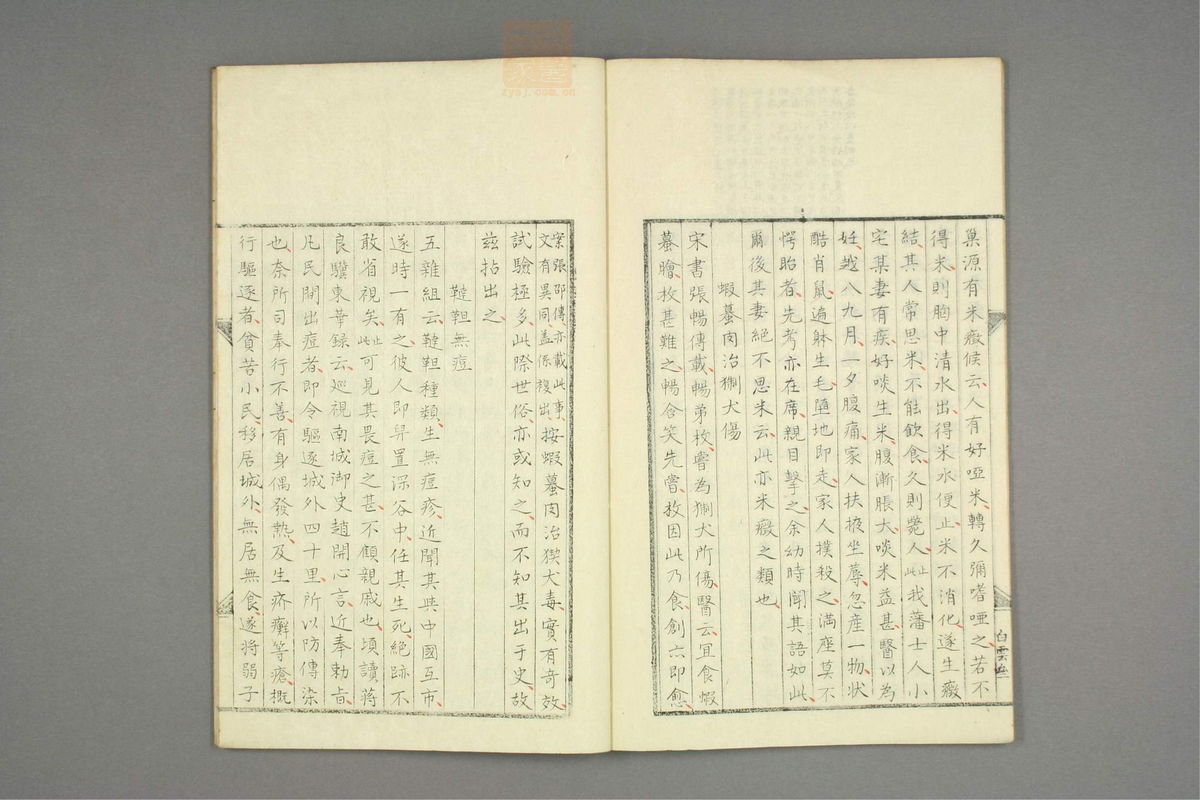 巢源有米癥候云人有好啞米轉久彌嗜啞之若不
得米則胸中清水出得米水便止米不消化遂生癥
結其人常思米不能飲食久則斃人止此我藩士人小
宅某妻有疾好啖生米腹漸脹大啖米益甚醫以為
妊越八九月一夕腹痛家人扶掖坐蓐忽産一物状
酷肖鼠遍躰生毛堕地即走家人撲殺之満座莫不
愕眙者先考亦在席親目擊之余幼時聞其語如此
爾後其妻絶不思米云此亦米癥之類也
蝦蟇肉治猘犬傷
宋書張暢傳載暢弟枚嘗為猘犬所傷醫云宜食蝦
蟇膾枚甚難之暢含笑先嘗枚因此乃食創亦即愈
案張邵傳亦載此事
文有異同蓋係複出按蝦蟇肉治猘犬毒實有奇效
試驗極多此際世俗亦或知之而不知其出于史故
茲拈出之
韃靼無痘
五雜組云韃靼種類生無痘疹近聞其與中國互市
遂時一有之彼人即舁置深谷中任其生死絶跡不
敢省視矣止此可見其畏痘之甚不顧親戚也頃讀蒋
良騏東華録云巡視南城御史趙開心言近奉勅旨
凡民間出痘者即令驅逐城外四十里所以防傳染
也奈所司奉行不善有身偶發熱及生疥癬等瘡概
行驅逐者貧苦小民移居城外無居無食遂將弱子
zysj.com.cn